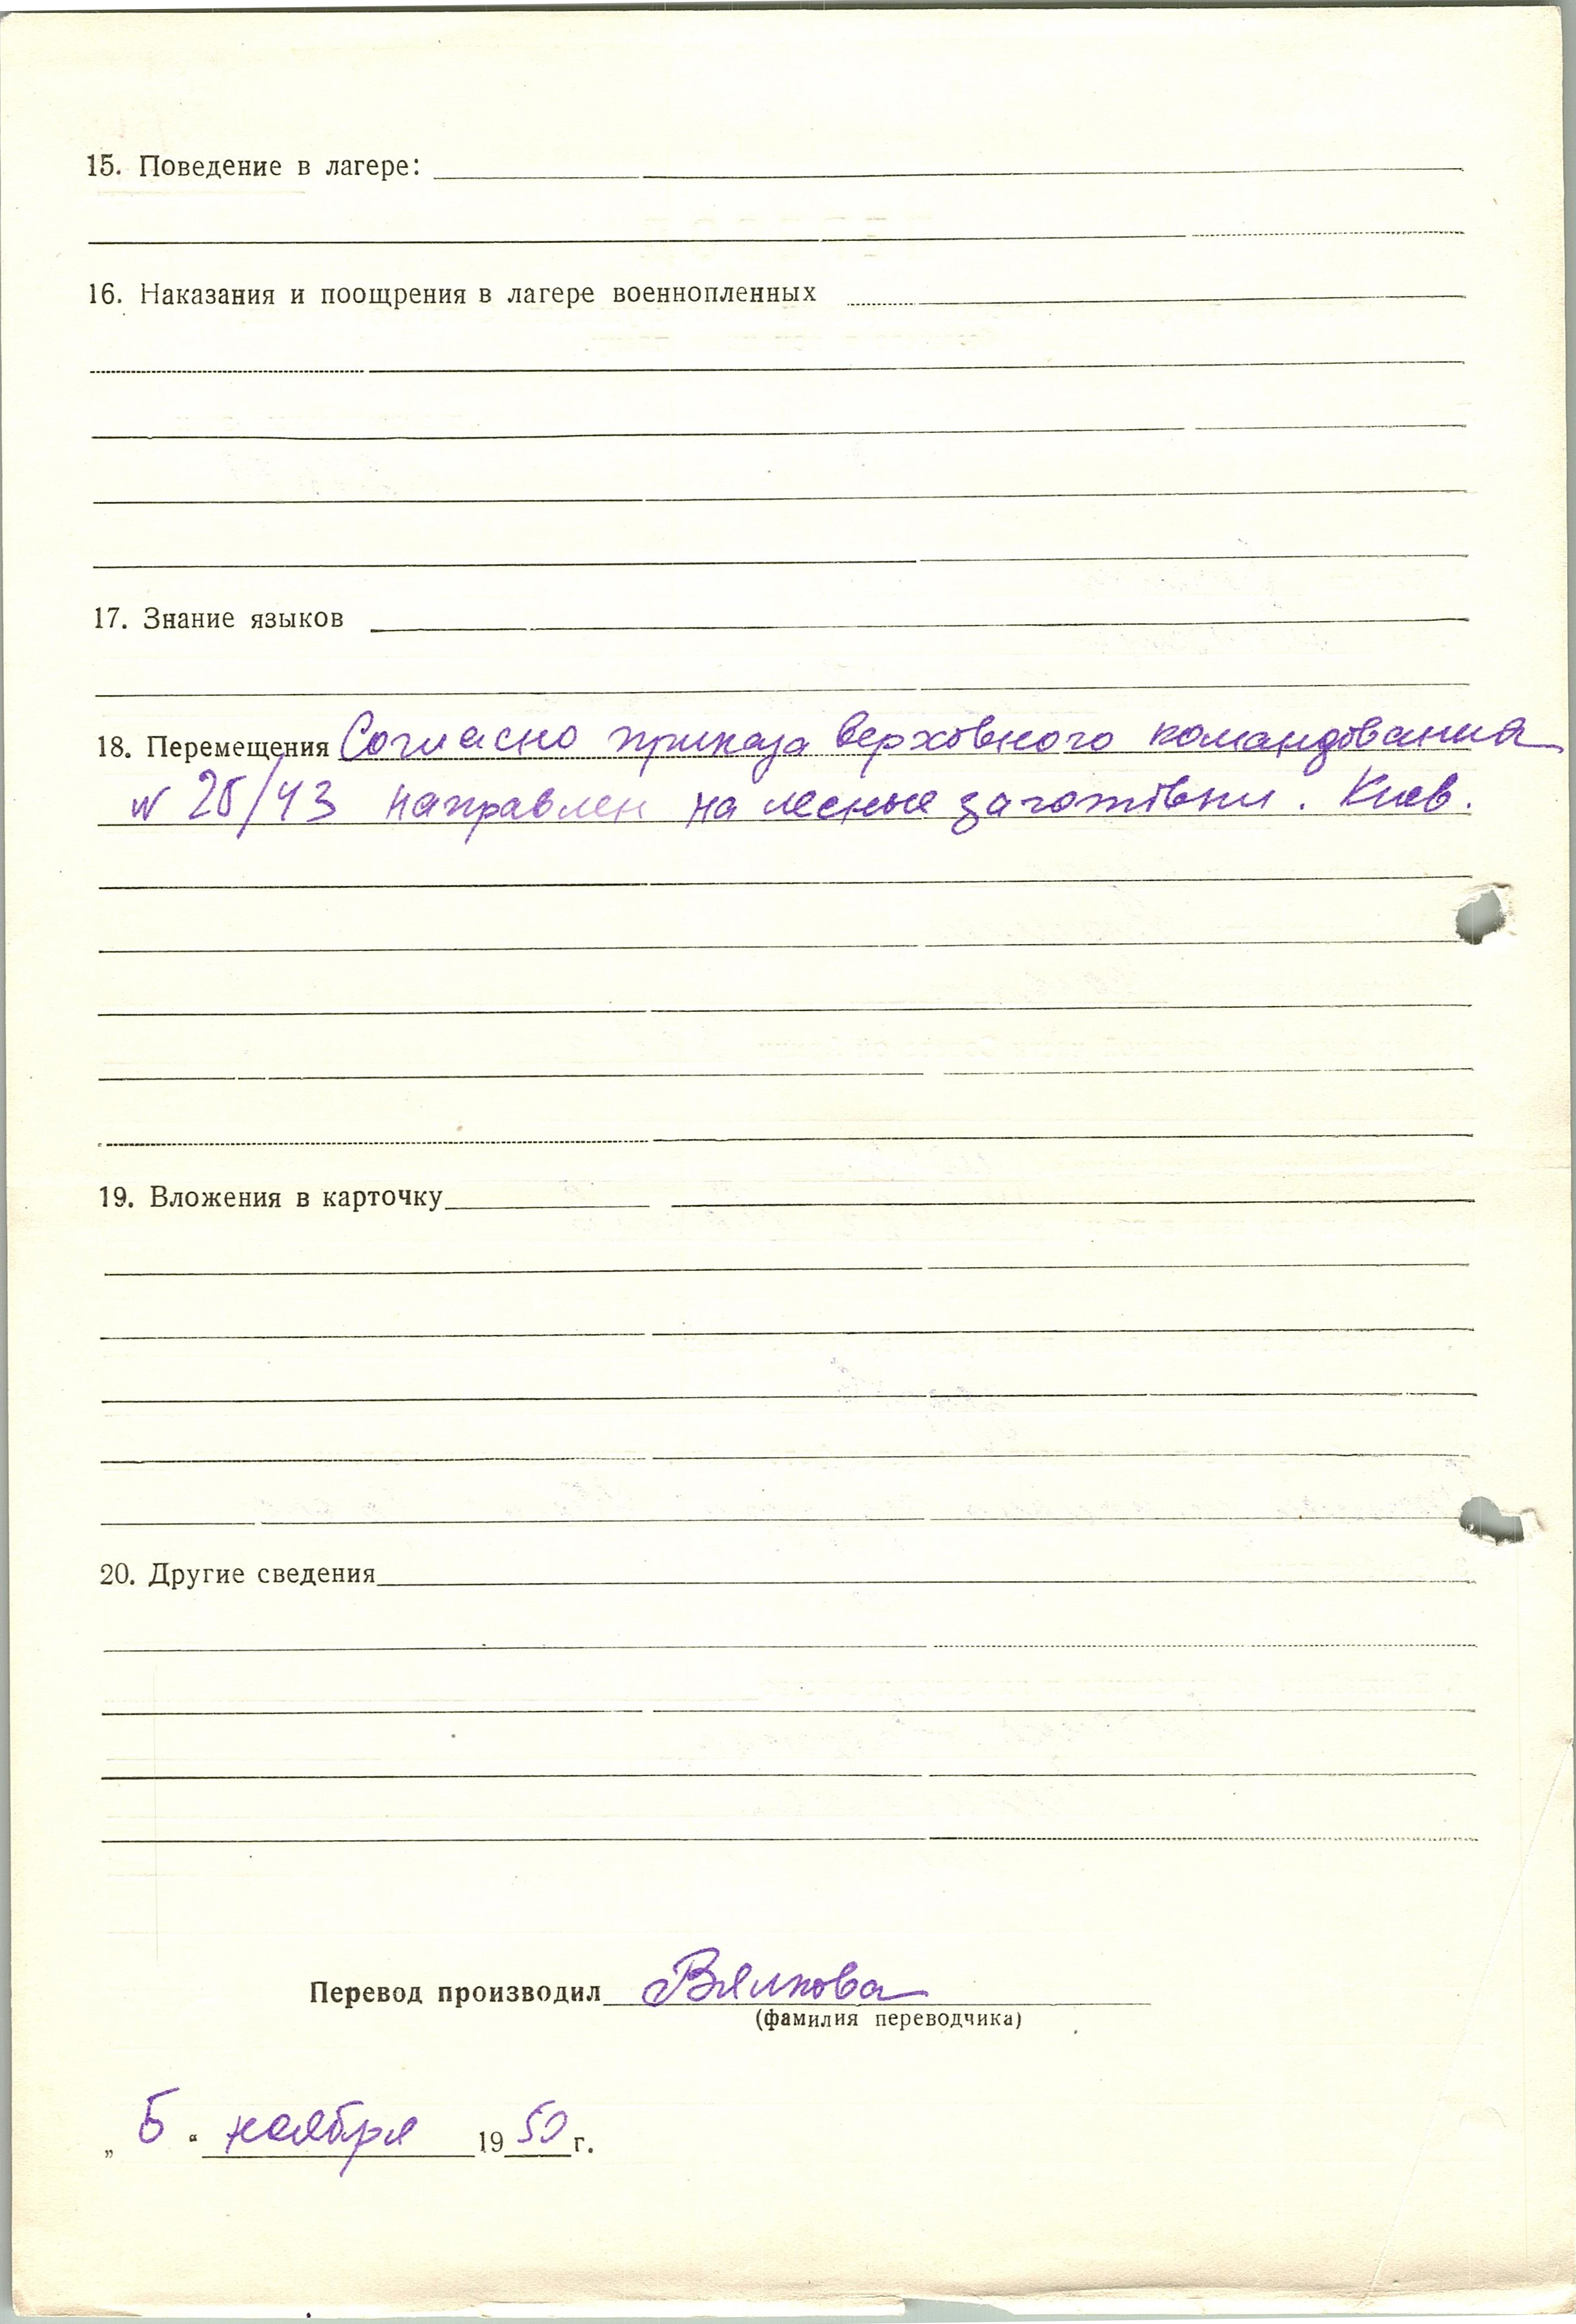 15. Поведение в лагере:
16. Наказания и поощрения в лагере военнопленных
17. Знание языков
18. Перемещения Согласно приказа верховного командования
№ 25/43 направлен на лесные заготовки. Киев.
19. Вложения в карточку
20. Другие сведения
Перевод производил Вялкова
(фамилия переводчика)
„ 5 “ ноября 1950 г.